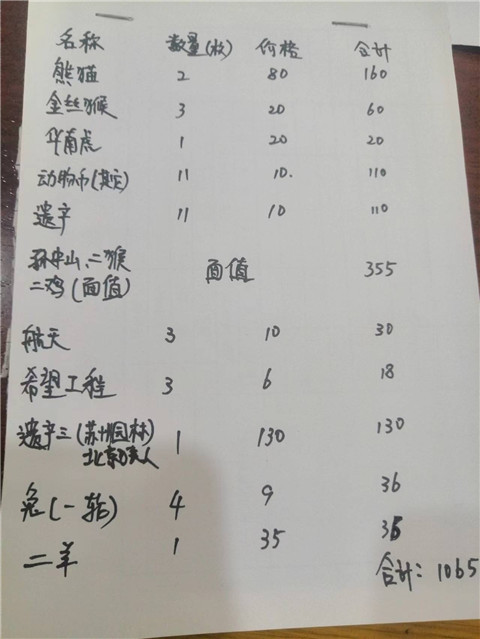 名称 数量(枚) 价格 合计
熊猫 2 80 160
金丝猴 3 20 60
华南虎 1 20 20
动物币(其它) 11 10. 110
遗产 11 10 110
孙中山、二猴
二鸡(面值) 面值 355
航天 3 10 30
希望工程 3 6 18
遗产三(苏州园林) 1 130 130
北京
兔(一轮) 4 9 36
二羊 1 35 35
合计: 1065